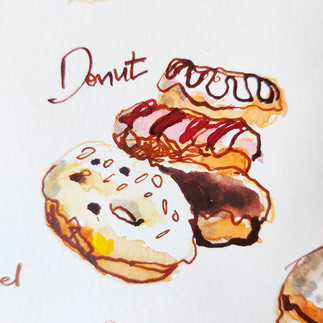 Donut
el